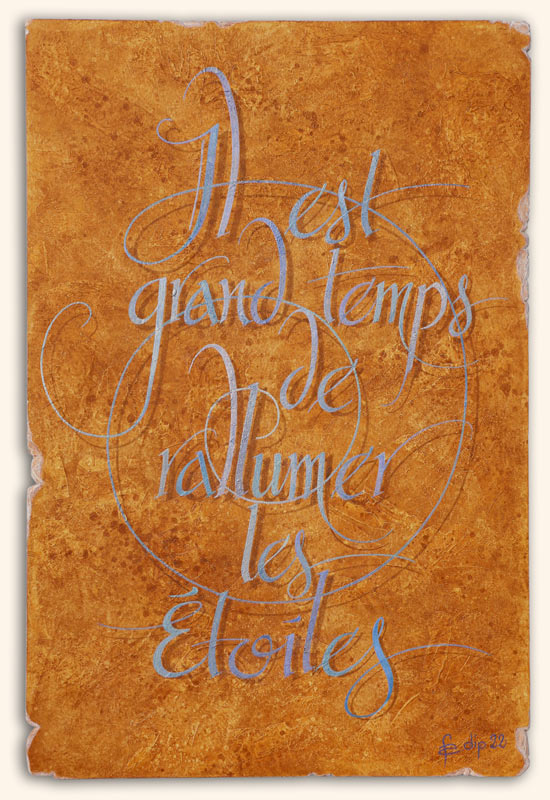 Il est
grand temps
de
rallumer
les
Étoiles
dlp 22